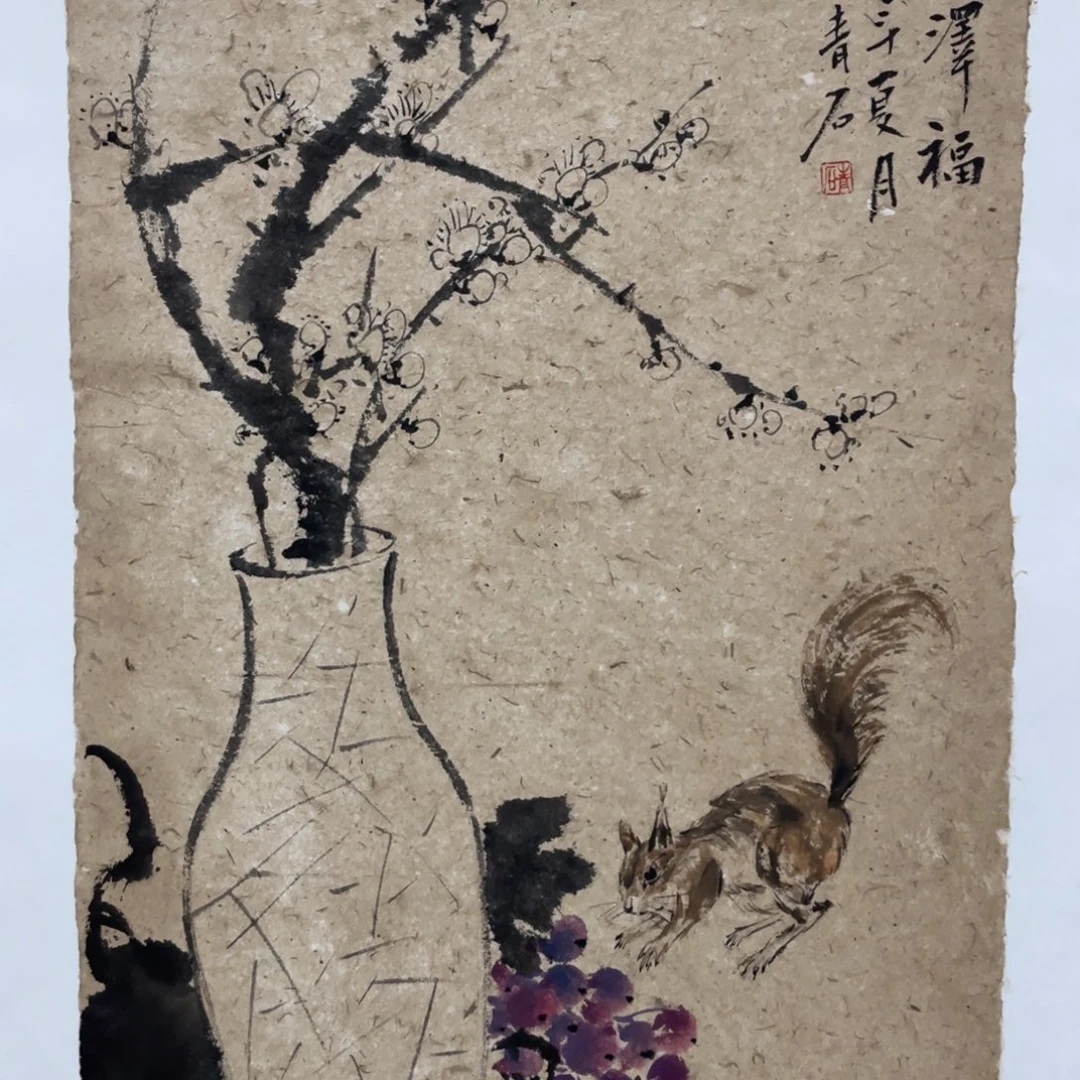 澤福
年夏月
青石